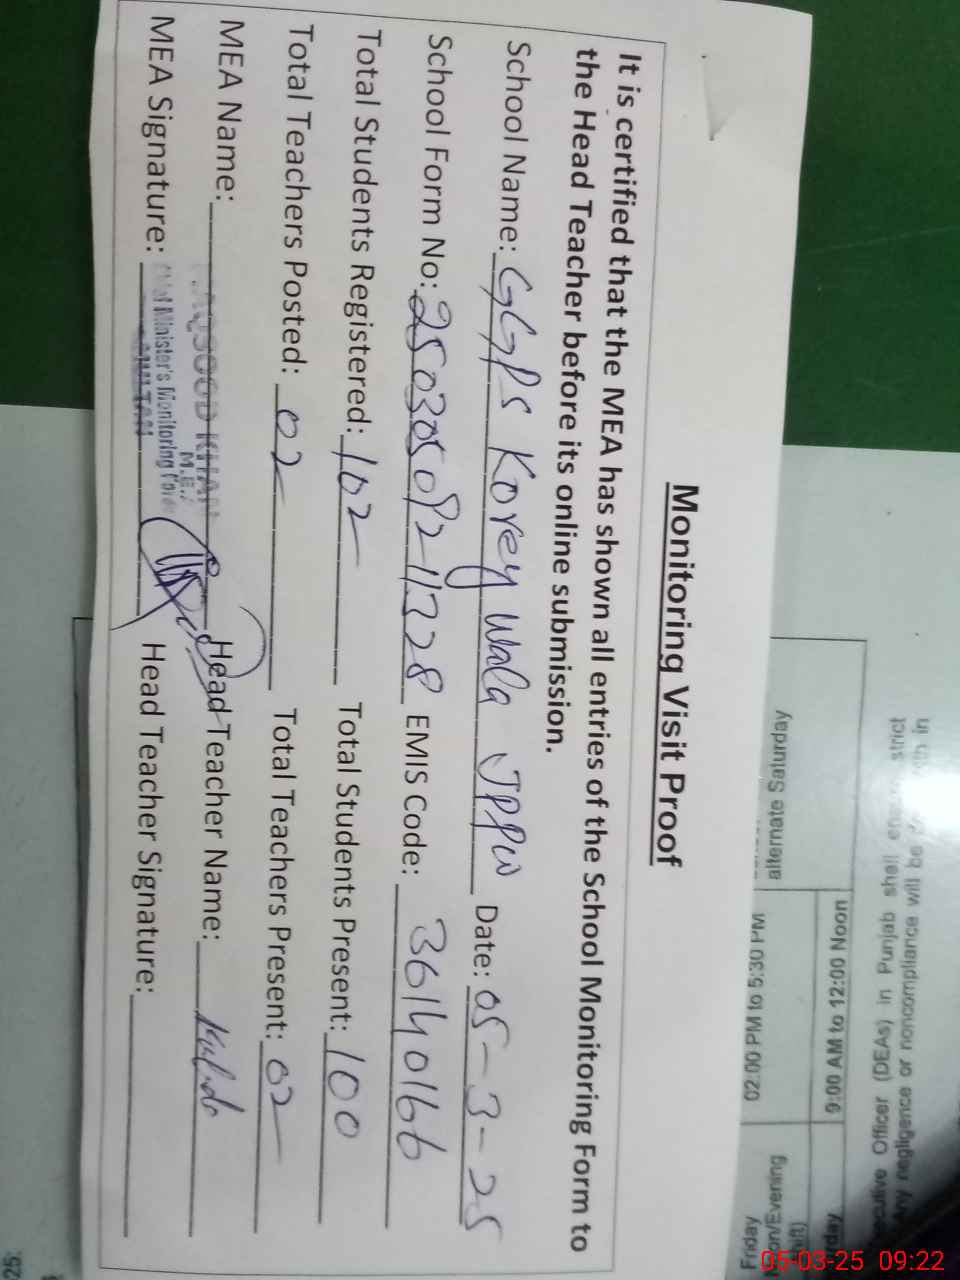 Monitoring Visit Proof
It is certified that the MEA has shown all entries of the School Monitoring Form to
the Head Teacher before its online submission.
School Name: GGPS Korey wala JPPW Date: 05-3-25
School Form No: 2503050921328 EMIS Code: 36140166
Total Students Registered: 102 Total Students Present: 100
Total Teachers Posted: 02 Total Teachers Present: 02
MEA Name: MAQSOOD KHAN Head Teacher Name:
M.E.A
MEA Signature: Chief Minister's Monitoring Force Head Teacher Signature:
MULTAN
alternate Saturday
02:00 PM to 5:30 PM
9:00 AM to 12:00 Noon
on/Evening
Friday
Officer (DEAs) in Punjab shall
Any negligence or noncompliance will be
05-03-25 09:22